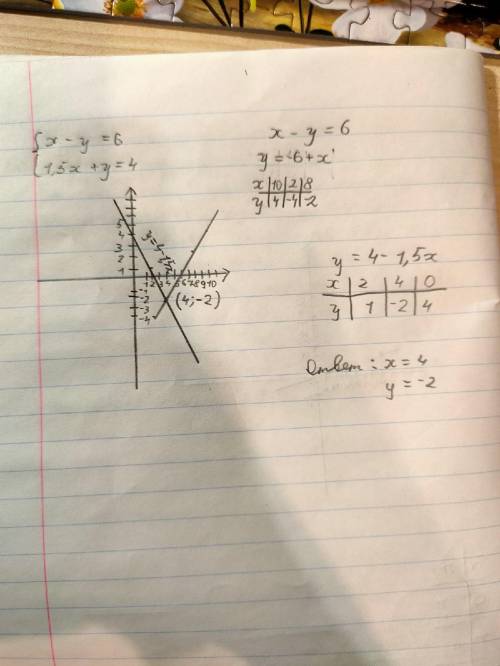 {x - y = 6
1,5x + y = 4
x - y = 6
y = -6 + x
x | 10 | 2 | 8
y | 4 | -4 | 2
y = 4 - 1,5x
x | 2 | 4 | 0
y | 1 | -2 | 4
Ответ: x = 4
y = -2
5
4
3
2
1
-1
-2
-3
-4
1 2 3 4 5 6 7 8 9 10
y=4-1,5x
(4;-2)